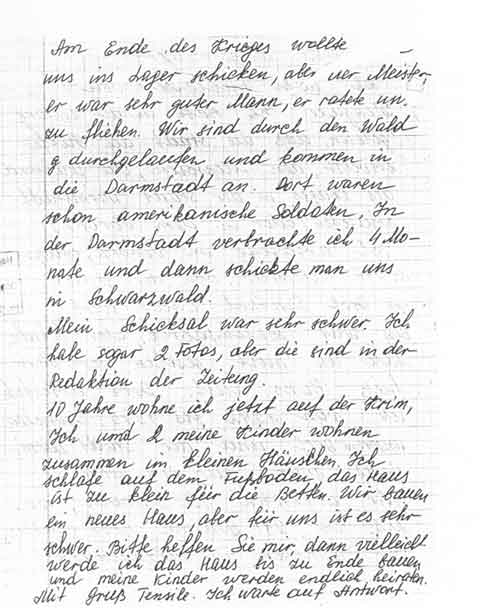 Am Ende des Krieges wollte –
uns ins Lager schicken, aber der Meister,
er war sehr guter Mann, er ratete un.
zu fliehen. Wir sind durch den Wald
g durchgelaufen und kommen in
die Darmstadt an. Dort waren
schon amerikanische Soldaten. In
der Darmstadt verbrachte ich 4 Mo-
nate und dann schickte man uns
in Schwarzwald.
Mein Schicksal war sehr schwer. Ich
habe sogar 2 Fotos, aber die sind in der
Redaktion der Zeitung.
10 Jahre wohne ich jetzt auf der Krim,
Ich und 2 meine Kinder wohnen
zusammen im kleinen Häuschen. Ich
schlafe auf dem Fußboden, das Haus
ist zu klein für die Betten. Wir bauen
ein neues Haus, aber für uns ist es sehr
schwer. Bitte helfen Sie mir, dann vielleicht
werde ich das Haus bis zu Ende bauen
und meine Kinder werden endlich heiraten.
Mit Gruß Tensile. Ich warte auf Antwort.